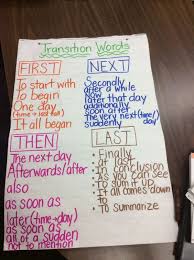 Transition Words
FIRST
To start with
To begin
One day
(time → last fall)
It all began
NEXT
Secondly
after a while
Now
later that day
additionally
soon after
The very next (time/
suddenly day)
THEN
The next day
Afterwards/after
also
as soon as
later (time → day)
as soon as
all of a sudden
not to mention
LAST
• Finally
• at last
• In conclusion
• As you can see
• To sum it up
• It all comes down
to
• To summarize